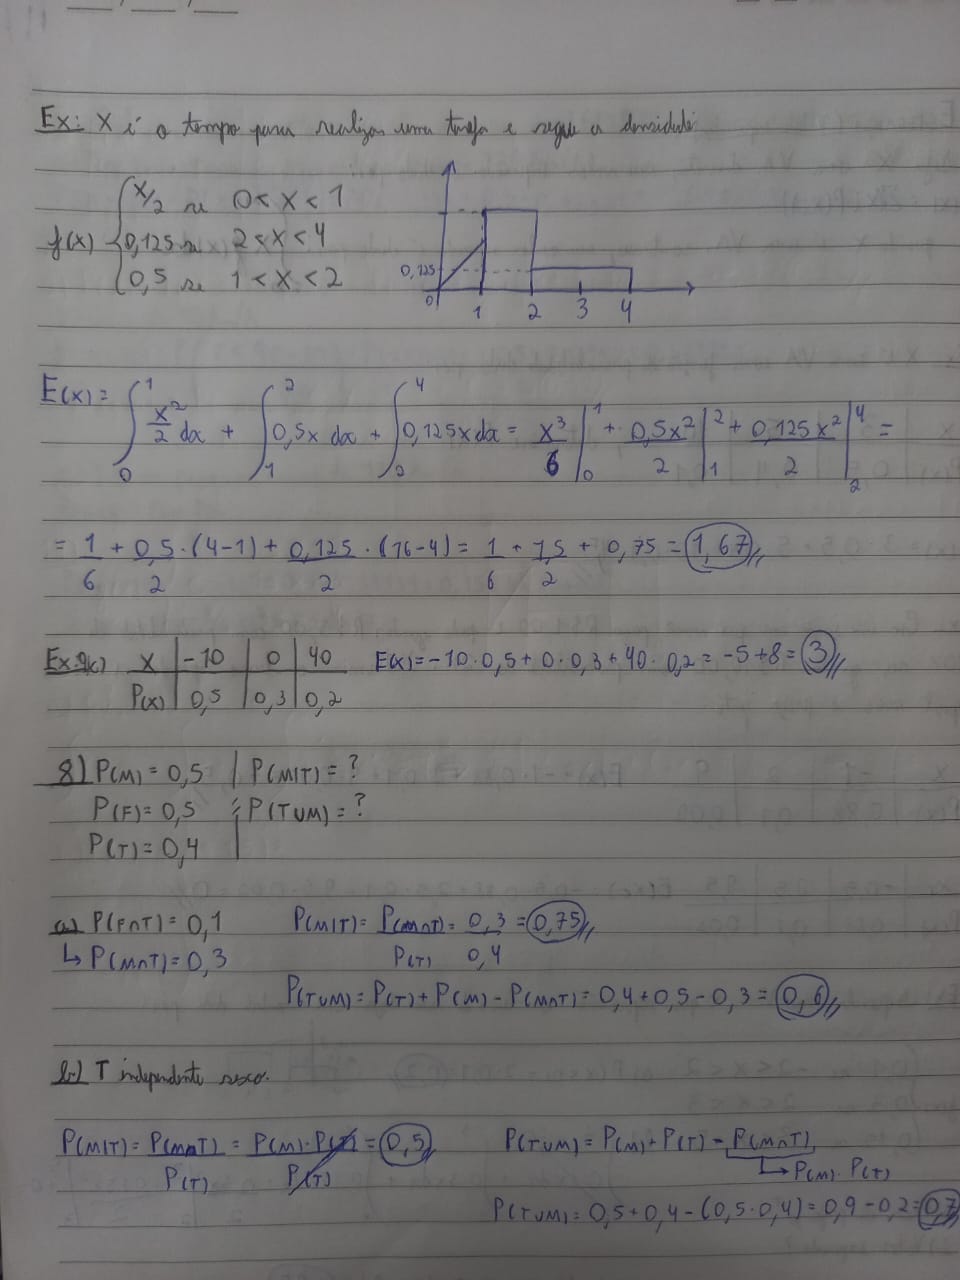 Ex: X é o tempo para realizar uma tarefa e segue a densidade:
f(x) { x/2 se 0 < x < 1
0,125 se 2 < x < 4
0,5 se 1 < x < 2
0,125
0 1 2 3 4
E(x) = ∫₀¹ x²/2 dx + ∫₁² 0,5x dx + ∫₀⁴ 0,125x dx = x³/6 |₀¹ + 0,5x²/2 |₁² + 0,125x²/2 |₂⁴ =
= 1/6 + 0,5/2 · (4-1) + 0,125/2 · (16-4) = 1/6 + 1,5/2 + 0,75 = 1,67
Ex. 9c) X | -10 | 0 | 40 E(x) = -10 · 0,5 + 0 · 0,3 + 40 · 0,2 = -5 + 8 = 3
P(x) | 0,5 | 0,3 | 0,2
8) P(M) = 0,5 | P(M|T) = ?
P(F) = 0,5 P(T∪M) = ?
P(T) = 0,4
a) P(F∩T) = 0,1 P(M|T) = P(M∩T)/P(T) = 0,3/0,4 = 0,75
↳ P(M∩T) = 0,3
P(T∪M) = P(T) + P(M) - P(M∩T) = 0,4 + 0,5 - 0,3 = 0,6
b) T independente sexo.
P(M|T) = P(M∩T)/P(T) = P(M) · P(T)/P(T) = 0,5 P(T∪M) = P(M) + P(T) - P(M∩T)
↳ P(M) · P(T)
P(T∪M) = 0,5 + 0,4 - (0,5 · 0,4) = 0,9 - 0,2 = 0,7